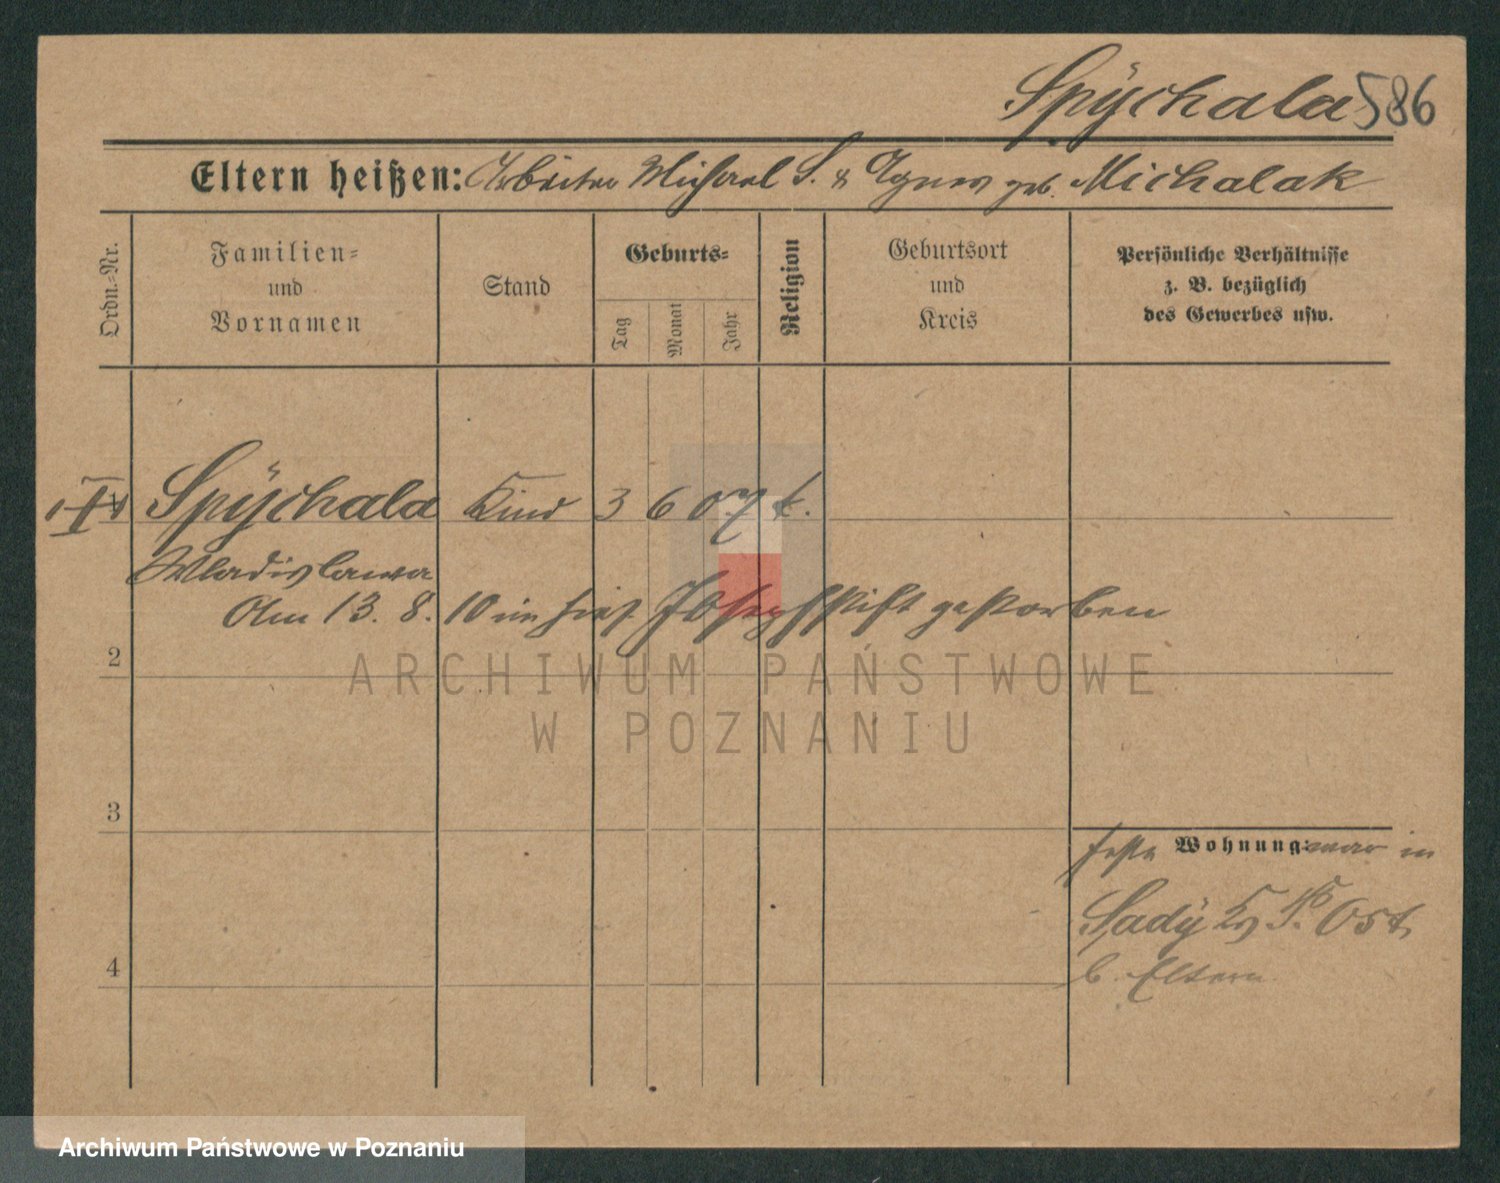 Spÿchala 586
Eltern heißen: Arbeiter Michael S. & Agnes geb. Michalak
Ordn.-Nr.
Familien- und Vornamen
Stand
Geburts-
Tag
Monat
Jahr
Religion
Geburtsort und Kreis
Persönliche Verhältnisse
z. B. bezüglich
des Gewerbes usw.
Spÿchala Kind 3 6 07 k.
Wladislawa
Am 13. 8. 10 im hies. Josephstift gestorben
2
ARCHIWUM PAŃSTWOWE
W POZNANIU
3
feste Wohnung: war in
Sadÿ Ks P. Ost
4
b. Eltern
Archiwum Państwowe w Poznaniu